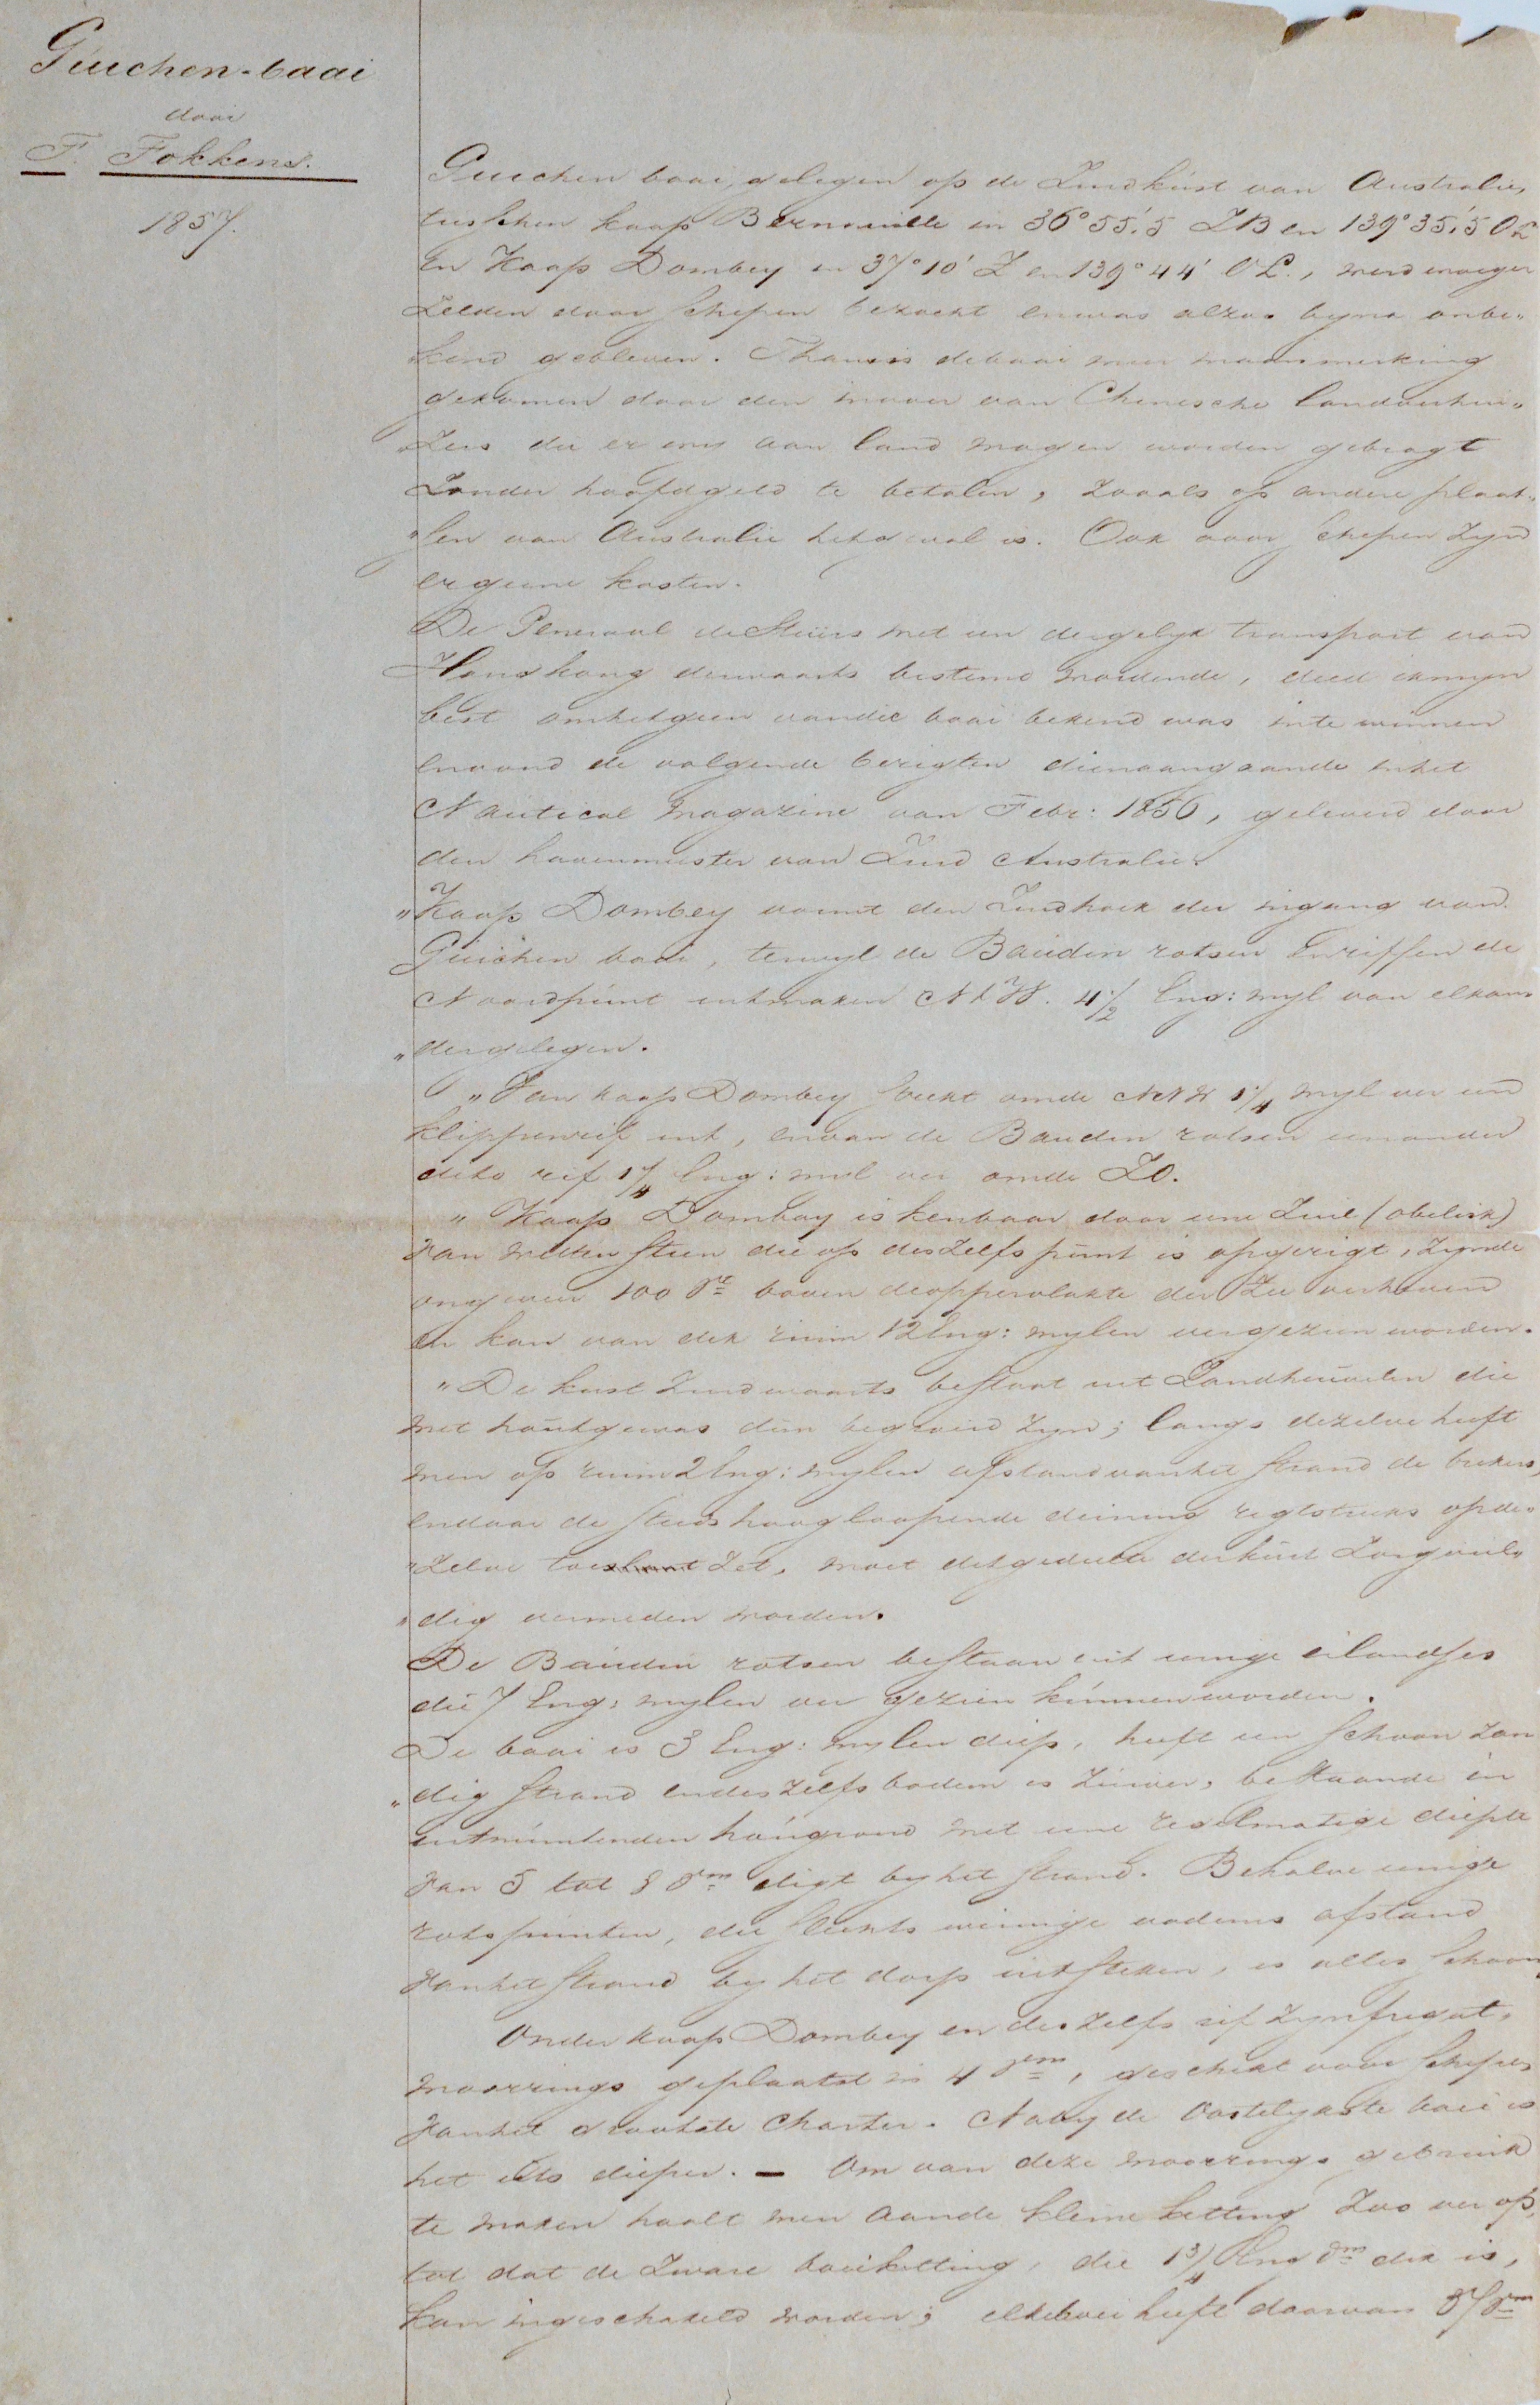 Guichen-baai
door
F. Fokkens.
1857.
Guichen baai, gelegen op de Zuidkust van Australie,
tusschen kaap Bernouille in 36° 55,'5 ZB en 139° 35,'5 OL
En Kaap Dombey in 37° 10' Z en 139° 44' OL., werd vroeger
Zelden door schepen bezocht en was alzoo byna onbe„
„kend gebleven. Thans is de baai meer in aanmerking
gekomen door den invoer van Chinesche landverhui„
„zers die er vry aan land mogen worden gebragt
Zonder hoofdgeld te betalen, zooals op andere plaat„
„sen van Australie het geval is. Ook voor schepen zyn
er geene kosten.
De Generaal de Stuers met een dergelyk transport van
Hongkong derwaarts bestemd wordende, deed ik myn
best om hetgeen van die baai bekend was in te winnen
en vond de volgende berigten dienaangaande in het
Nautical Magazine van Febr: 1856, geleverd door
den havenmeester van Zuid Australie.
„Kaap Dombey vormt den Zuidhoek der ingang van
Guichen baai, terwyl de Baudin rotsen en riffen de
Noordpunt uitmaken N t W. 4 1/2 Eng: myl van elkan
„der gelegen.
„Van kaap Dombey strekt om de NNW 1 1/4 myl ver een
klippenrif uit, en van de Baudin rotsen een ander
dito rif 1 1/4 Eng: myl ver om de ZO.
„Kaap Dombey is kenbaar door eene Zuil (obelisk)
van witten steen die op deszelfs punt is opgerigt, zynde
ongeveer 100 vt boven de oppervlakte der Zee verheven
en kan van dek ruim 12 Eng: mylen ver gezien worden.
„De kust Zuidwaarts bestaat uit Zandheuvelen die
met houtgewas dun begroeid zyn; langs dezelve heeft
men op ruim 2 Eng: mylen afstand van het strand de brekers,
en daar de steeds hoog loopende deining regtstreeks op de„
„zelve toe zet, moet dit gedeelte der kust Zorgvul„
„dig vermeden worden.
De Baudin rotsen bestaan uit eenige eilandjes
die 7 Eng: mylen ver gezien kunnen worden.
De baai is 3 Eng: mylen diep, heeft een schoon zan
„dig strand en deszelfs bodem is zuiver, bestaande in
uitmuntenden houdgrond met eene regelmatige diepte
van 5 tot 3 vm digt by het strand. Behalve eenige
rotspunten, die slechts weinige vadems afstand
van het strand by het dorp uitsteken, is alles schoon
Onder kaap Dombey en deszelfs rif zyn fregat„
moorings geplaatst in 4 vm, geschikt voor schepen
van het grootste Charter. Naby de oostelykste boei is
het iets dieper. — Om van deze moorings gebruik
te maken haalt men aan de kleine ketting zoo ver op,
tot dat de Zware boeiketting, die 1 3/4 Eng dm dik is,
kan ingeschakeld worden; elke boei heeft daarvan